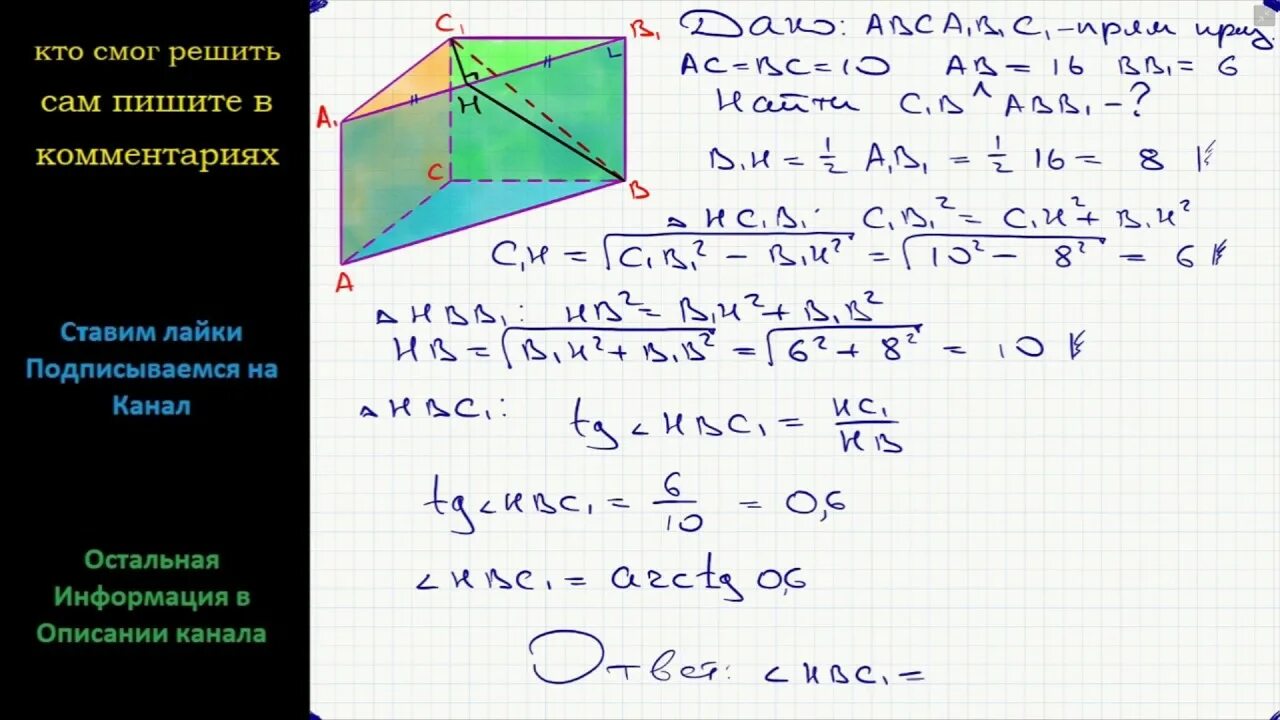 кто смог решить
сам пишите в
комментариях
Ставим лайки
Подписываемся на
Канал
Остальная
Информация в
Описании канала
C₁
B₁
A₁
H
C
B
A
Дано: ABCA₁B₁C₁ - прям приз.
AC = BC = 10 AB = 16 BB₁ = 6
Найти C₁B ^ ABB₁ - ?
B₁H = 1/2 A₁B₁ = 1/2 16 = 8
△HC₁B₁: C₁B₁² = C₁H² + B₁H²
C₁H = √(C₁B₁² - B₁H²) = √(10² - 8²) = 6
△HBB₁: HB² = B₁H² + B₁B²
HB = √(B₁H² + B₁B²) = √(6² + 8²) = 10
△HBC₁: tg∠HBC₁ = HC₁/HB
tg∠HBC₁ = 6/10 = 0,6
∠HBC₁ = arctg 0,6
Ответ: ∠HBC₁ =